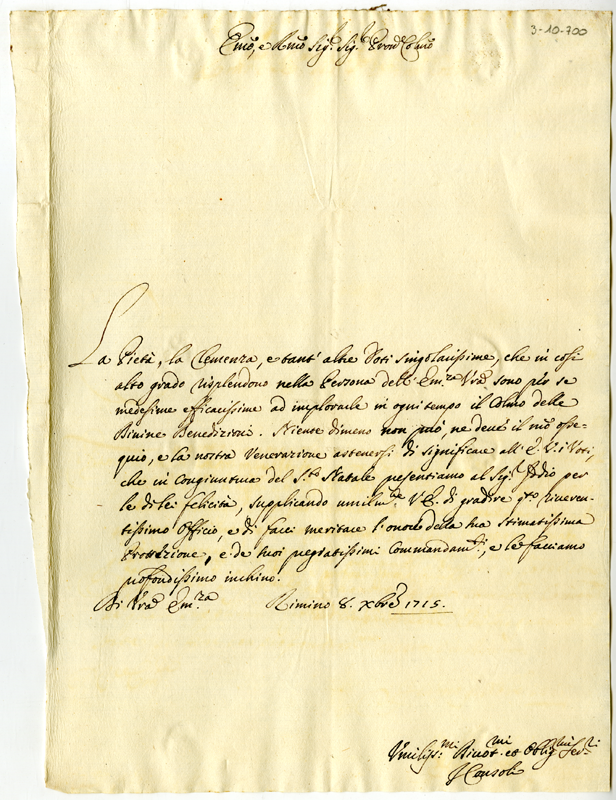 3-10-700
Emo, e Rmo Sig.r Sig.r Pron Colmo
La Pietà, la Clemenza, e tant' altre Doti singolarissime, che in così
alto grado risplendono nella Persona dell' Em.za Vra sono per se
medesime efficacissime ad implorarle in ogni tempo il Colmo delle
Divine Benedizioni. Niente dimeno non può, ne deve il nro osse-
quio, e la nostra Venerazione astenersi di significare all' E. V. i Voti,
che in Congiuntura del S.to Natale presentiamo al Sig.r Iddio per
le di lei felicità, supplicando umilm.te V. E. di gradire q.to riveren-
tissimo Officio, e di farci meritare l'onore della sua Stimatissima
Protezione, e de suoi pregiatissimi Commandam.ti, e le facciamo
profondissimo inchino.
Di Vra Em.za Rimino 8. Xbre 1715.
Vmiliss.mi Divot.mi et Oblig.mi Ser.ri
I Consoli